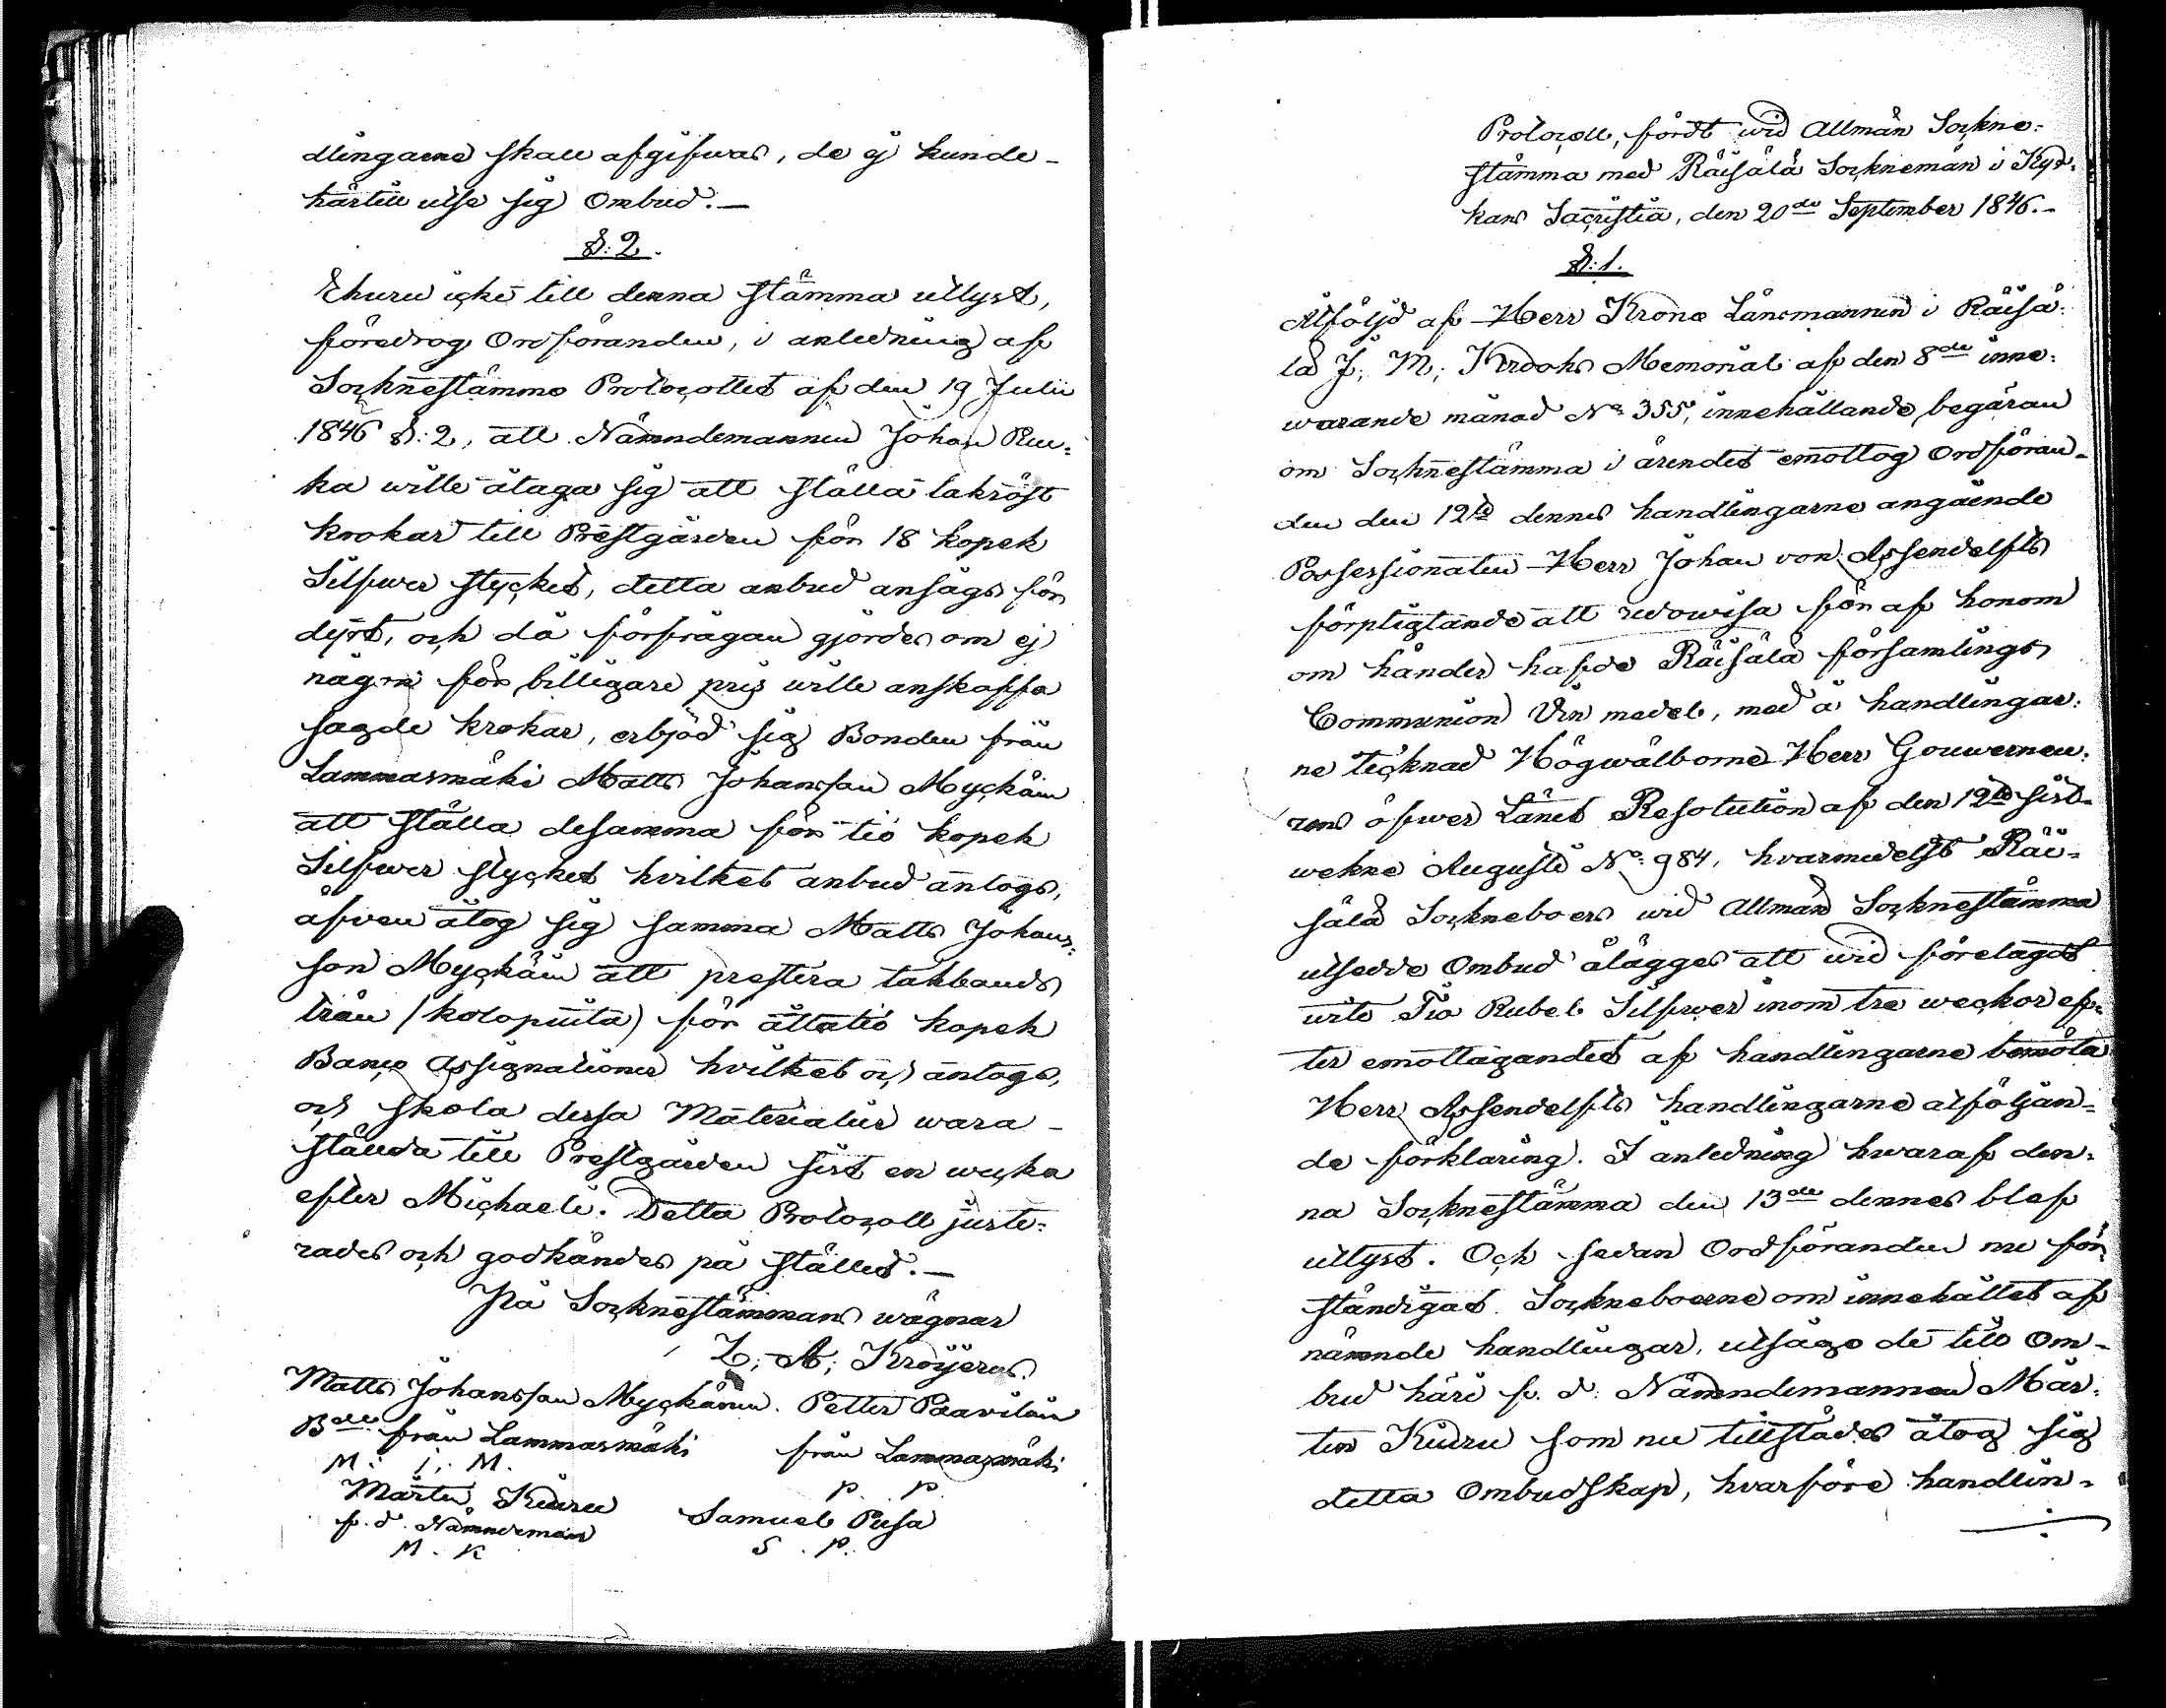 dlingarne skall afgifwas, de ej kunde
härtill utse sig Ombud.—
§: 2.
Ehuru icke till denna stämma utlyst,
föredrog Ordföranden, i anledning af
Socknestämmo Protocollet af den 19 Julii
1846 §: 2, att Nämndemannen Johan Ruu=
ka wille åtaga sig att ställa takröst
krokar till Prestgården för 18 kopek
Silfwer stycket, detta anbud ansågs för
dyrt, och då förfrågan gjordes om ej
någon för billigare pris wille anskaffa
sagde krokar, erbjöd sig Bonden från
Lammasmäki Matts Johansson Myckäin
att ställa desamma för tio kopek
Silfwer stycket hvilket anbud antogs,
äfven åtog sig samma Matts Johans=
son Myckäin att prestera takbands
trän (kolopuita) för åttatio kopek
Banco Assignationer hvilket ock antogs,
och skola dessa Materialier wara
ställda till Prestgården sist en wecka
efter Michaeli. Detta Protocoll juste=
rades och godkändes på stället.—
På Socknestämmans wägnar
Z; A; Kröyerus.
Matts Johansson Myckäinen. Petter Paavilain
Bde från Lammasmäki från Lammasmäki
M. J. M. P. P.
Mårten Kiuru Samuel Pusa
f. d. Nämndeman S. P.
M. K
Protocoll, fördt wid Allmän Sockne=
stämma med Räisälä Socknemän i Kyr=
kans Sacristia, den 20de September 1846.-
§: 1.
Åtföljd af Herr Krono Länsmannen i Räisä=
lä J; M; Kurdohs Memorial af den 8de inne=
warande månad No 355, innehållande begäran
om Socknestämma i ärendet emottog Ordföran=
den den 12te dennes handlingarne angående
Possessionaten Herr Johan von Assendelfts
förpligtande att redowisa för af honom
om händer hafde Räisälä församlings
Communion Vin medel, med å handlingar=
ne tecknad Högwälborne Herr Gouverneu=
rens öfwer Länet Resolution af den 12te sist=
wekne Augusti No: 984, hvarmedelst Räi=
sälä Sockneboer wid Allmän Socknestämma
utsedde Ombud ålägges att wid förelagdt
wite Tio Rubel Silfwer inom tre weckor ef=
ter emottagandet af handlingarne bemöta
Herr Assendelfts handlingarne åtföljan=
de förklaring. I anledning hwaraf den=
na Socknestämma den 13de dennes blef
utlyst. Och sedan Ordföranden nu för=
ständigat Sockneboerne om innehållet af
nämnde handlingar, utsågo de till Om=
bud häri f. d. Nämndemannen Mår=
ten Kiuru som nu tillstädes åtog sig
detta Ombudskap, hvarföre handlin=